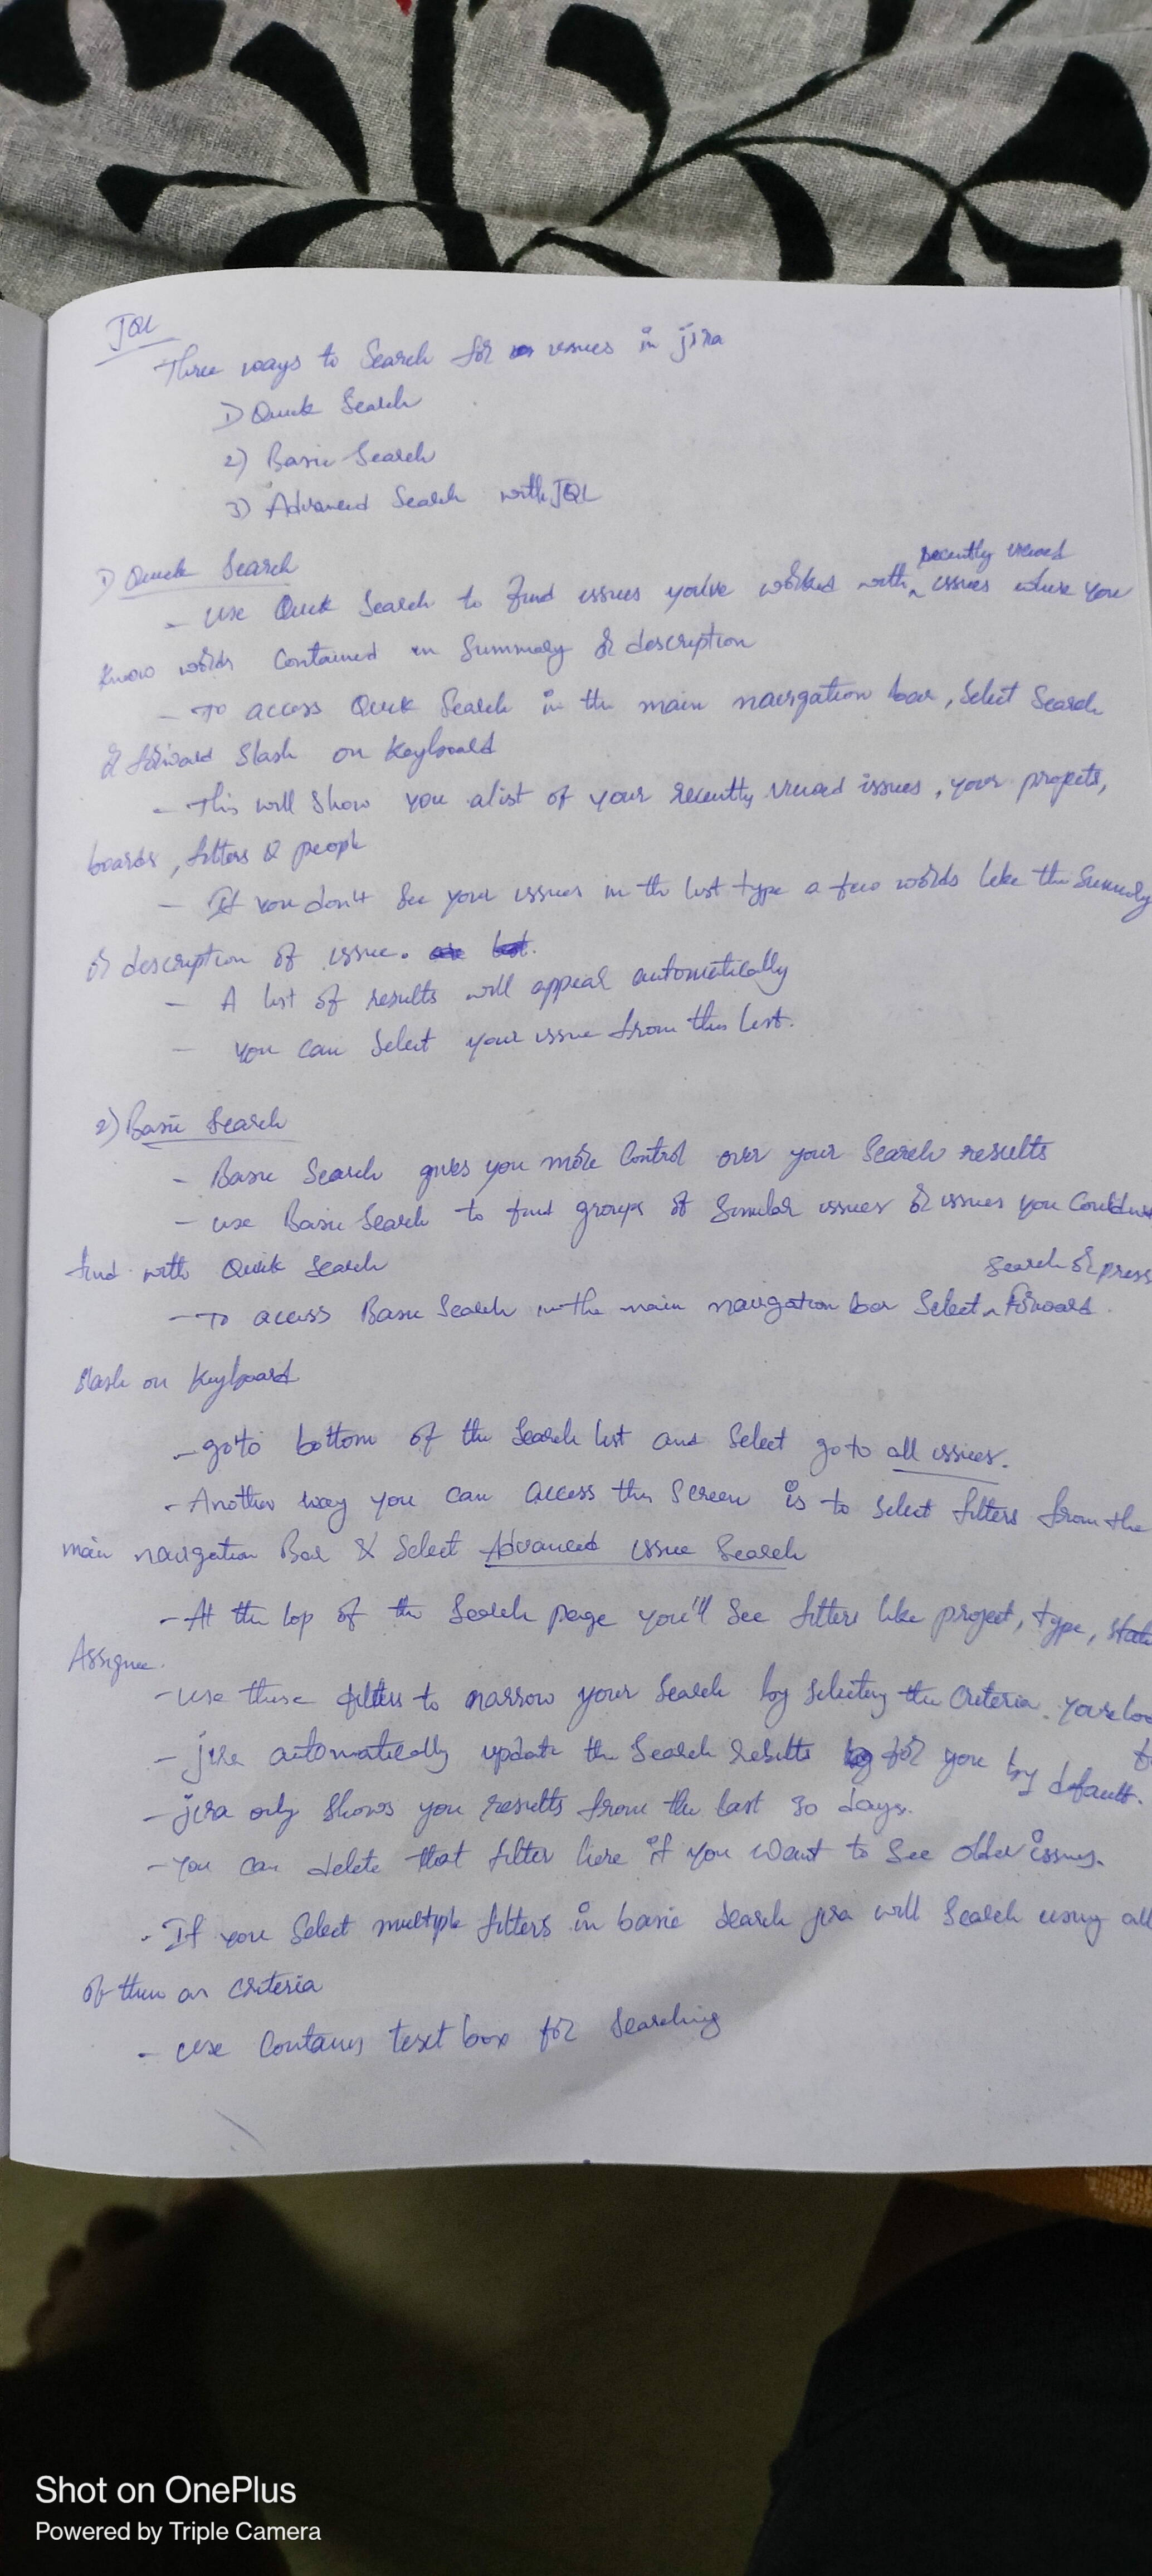 JQL
Three ways to Search for issues in jira
1) Quick Search
2) Basic Search
3) Advanced Search with JQL
1) Quick Search
recently viewed
- use Quick Search to find issues you've worked with, issues where you
know words Contained in Summary or description
- To access Quick Search in the main navigation bar, Select Search
or forward Slash on Keyboard
- This will Show you a list of your recently viewed issues, your projects,
boards, filters & people
- If you don't See your issues in the list type a few words like the Summary
or description of issue.
- A list of results will appear automatically
- you can Select your issue from this list.
2) Basic Search
- Basic Search gives you more Control over your Search results
- use Basic Search to find groups of Similar issues or issues you Couldn't
find with Quick Search
Search or press
- To access Basic Search in the main navigation bar Select Forward
slash on Keyboard
- goto bottom of the Search list and Select go to all issues.
- Another way you can access this Screen is to Select filters from the
main navigation Bar & Select Advanced issue Search
- At the top of the Search page you'll See filters like project, type,
Assignee.
- use these filters to narrow your Search by Selecting the Criteria. You're
- jira automatically update the Search results for you by default.
- jira only Shows you results from the last 30 days.
- You can delete that filter here if you want to See older issues.
- If you Select multiple filters in basic Search jira will Search using all
of them as Criteria
- use Contains text box for Searching
Shot on OnePlus
Powered by Triple Camera